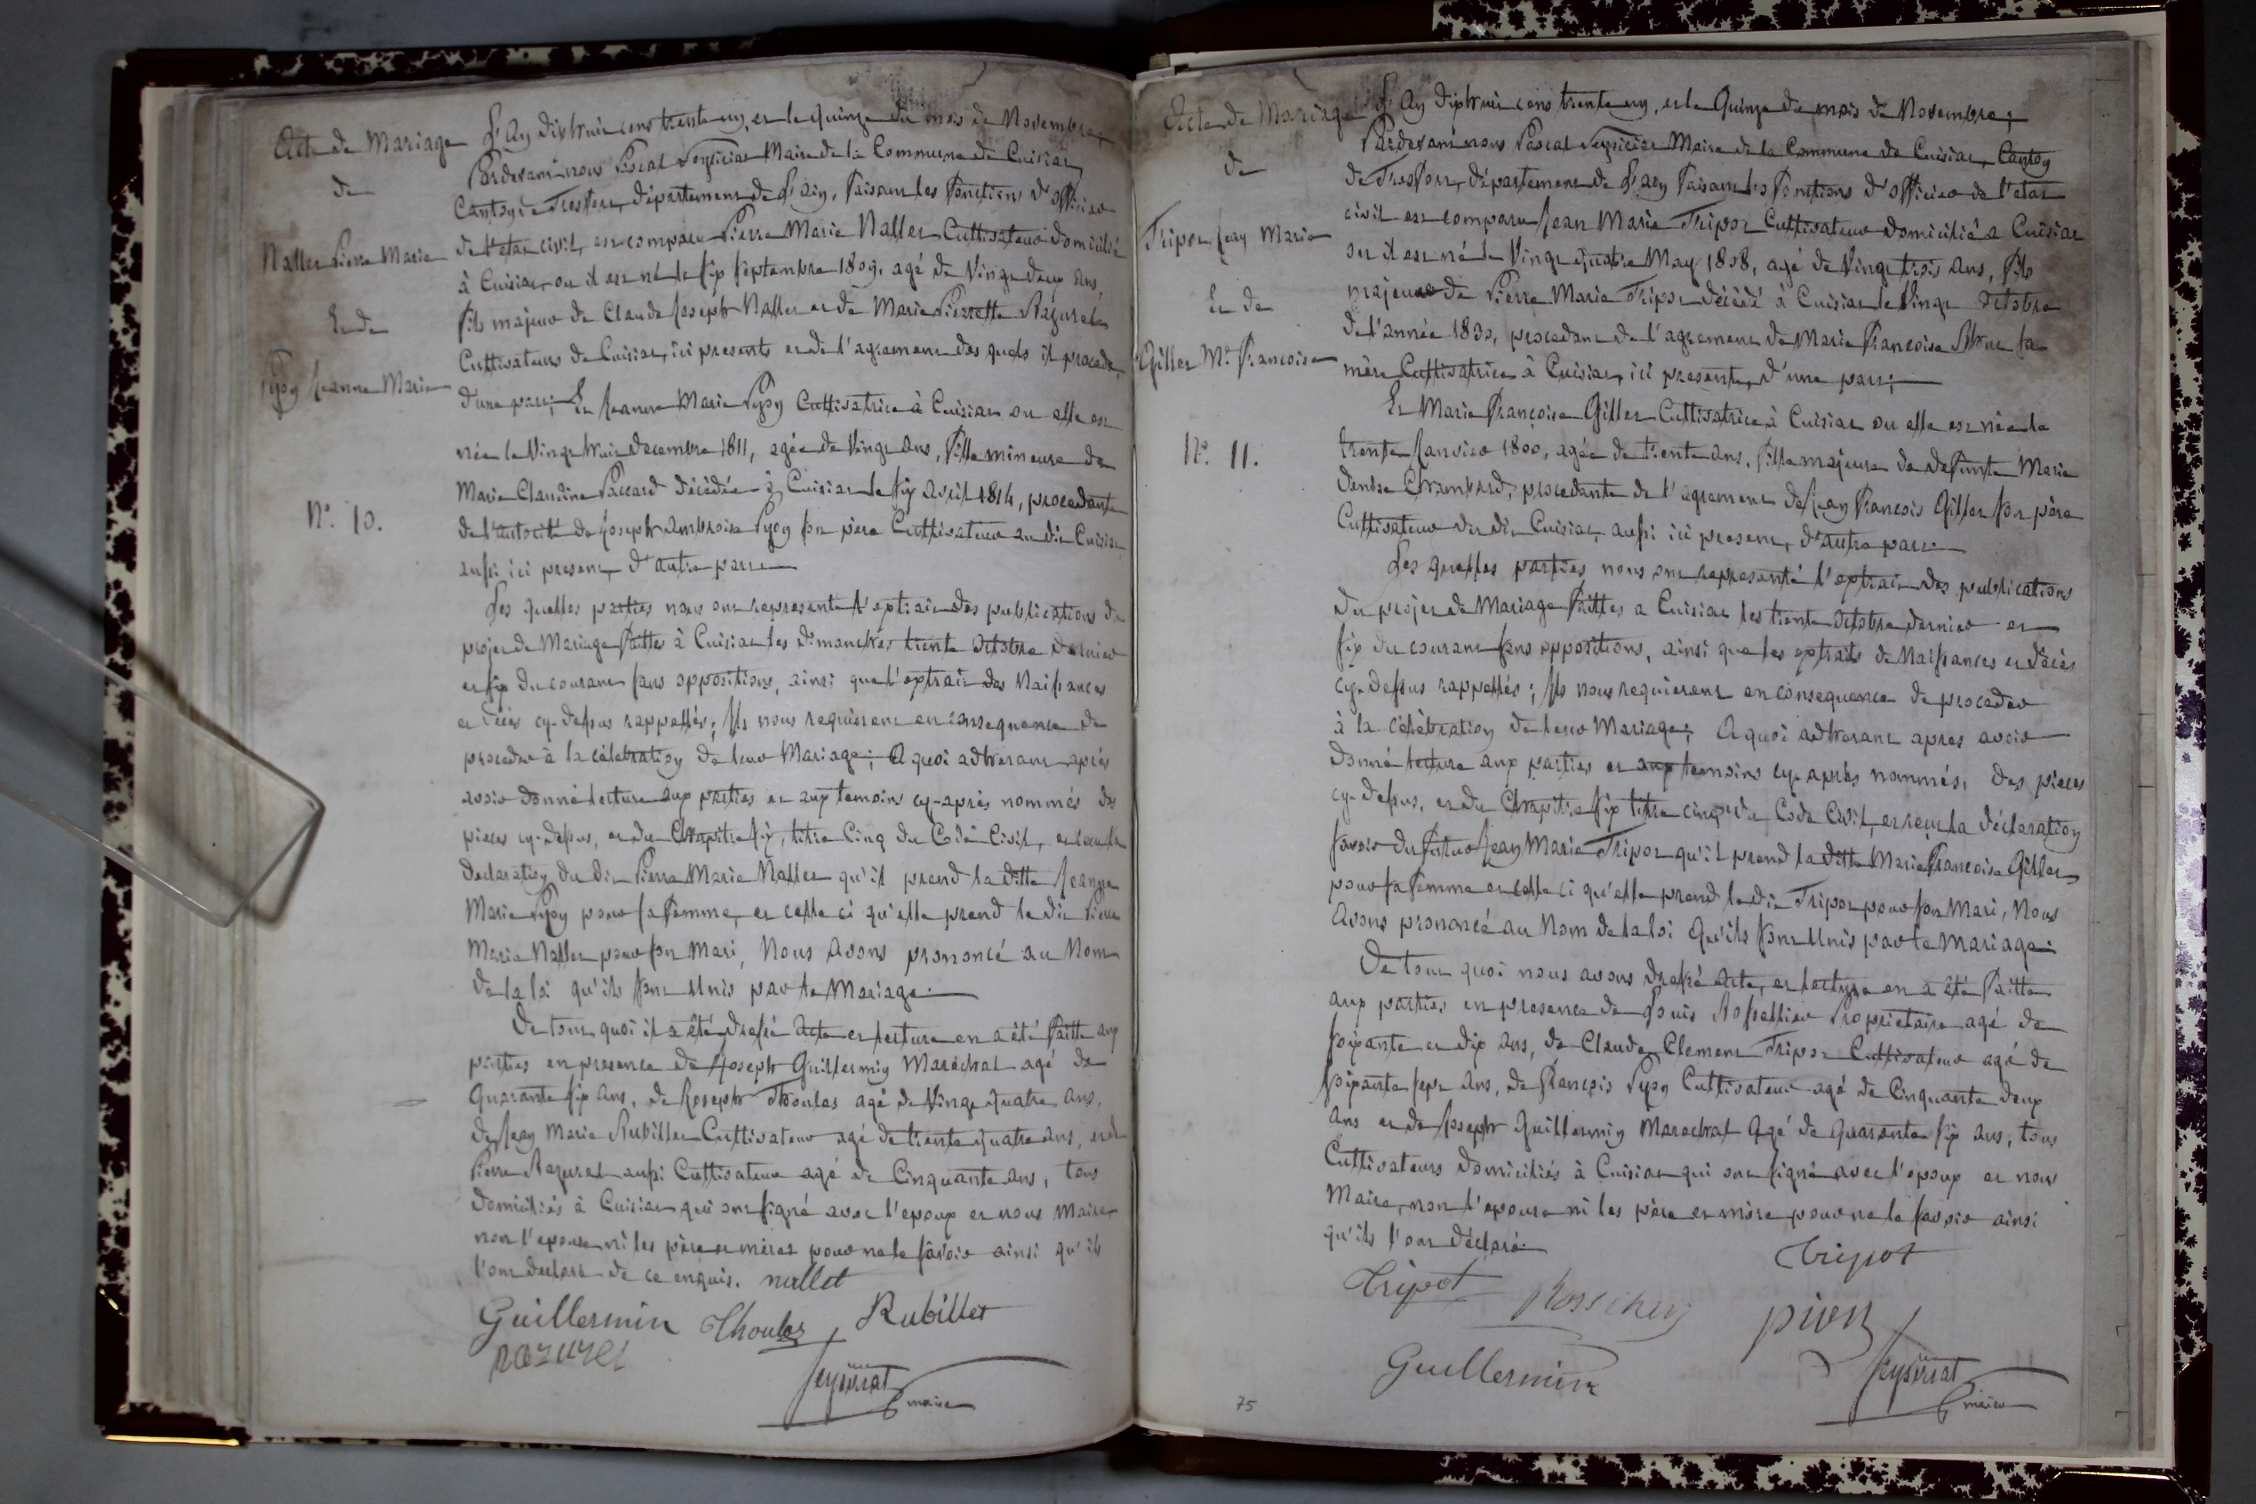 Acte de Mariage
de
Nallet Pierre Marie
Et de
Pyon Jeanne Marie
N°. 10.
L'an dixhuit cent trente un, et le quinze du mois de Novembre,
Pardevant nous Pascal Maire de la Commune de Cuisiat
Canton de Treffort, département de L'ain, faisant les fonctions d'officier
de l'etat civil, est comparu Pierre Marie Nallet Cultivateur domicilié
à Cuisiat, ou il est né le six septembre 1809, agé de Vingt deux ans,
fils majeur de Claude Joseph Nallet et de Marie Pierrette Razurel
Cultivateurs de Cuisiat, ici presents et de l'agrement des quels il procede,
d'une part; Et Jeanne Marie Pyon Cultivatrice à Cuisiat ou elle est
née le Vingt huit decembre 1811, agée de Vingt ans, fille mineure de
Marie Claudine Paccard décédée à Cuisiat le six avril 1814, procedante
de l'autorité de Joseph Ambroise Pyon son père Cultivateur au dit Cuisiat
aussi ici present, d'autre part
Les quelles parties nous ont representé l'extrait des publications du
projet de Mariage faittes à Cuisiat les dimanches trente octobre dernier
et six du courant sans oppositions, ainsi que l'extrait des Naissances
et décès cy-dessus rappellés; Ils nous requierent en consequence de
proceder à la célébration de leur Mariage; A quoi adherant après
avoir donné lecture aux parties et aux temoins cy-après nommés des
pieces cy-dessus, et du Chapitre six, titre Cinq du Code Civil, et recu la
déclaration du dit Pierre Marie Nallet qu'il prend la ditte Jeanne
Marie Pyon pour sa femme, et celle ci qu'elle prend le dit Pierre
Marie Nallet pour son Mari, Nous avons prononcé au Nom
de la loi qu'ils sont Unis par le Mariage.
De tout quoi il a été dressé acte et lecture en a été faitte aux
parties en presence de Joseph Guillermin Maréchal agé de
Quarante six ans, de Joseph Thoulas agé de Vingt quatre ans,
de Jean Marie Rubillet Cultivateur agé de trente quatre ans, et de
Pierre Razurel aussi Cultivateur agé de Cinquante ans, tous
domiciliés à Cuisiat qui ont signé avec l'epoux et nous Maire
non l'epouse ni les père et mères pour ne le savoir ainsi qu'ils
l'ont declaré de ce enquis. nallet
Guillermin Thoulas Rubillet
razurel
maire
Acte de Mariage
de
Tripot Jean Marie
Et de
Gillet Mie Francoise
N°. 11.
L'an dixhuit cent trente un, et le Quinze du mois de Novembre,
Pardevant nous Pascal Maire de la Commune de Cuisiat, Canton
de Treffort, département de L'ain faisant les fonctions d'officier de l'etat
civil est comparu Jean Marie Tripot Cultivateur domicilié a Cuisiat
ou il est né le Vingt quatre May 1808, agé de Vingt trois ans, fils
majeur de Pierre Marie Tripot décédé à Cuisiat le Vingt octobre
de l'année 1830, procedant de l'agrement de Marie Francoise sa
mère Cultivatrice à Cuisiat, ici presente, d'une part;
Et Marie Françoise Gillet Cultivatrice à Cuisiat ou elle est née le
trente Janvier 1800, agée de trente ans, fille majeure de defunte Marie
Denise Chambard, procedante de l'agrement de Jean François Gillet son père
Cultivateur du dit Cuisiat, aussi ici present, d'autre part
Les quelles parties nous ont representé l'extrait des publications
du projet de Mariage faittes a Cuisiat les trente octobre dernier et
six du courant sans oppositions, ainsi que les extraits de Naissances et décès
cy-dessus rappellés; Ils nous requierent en consequence de proceder
à la célébration de leur Mariage; A quoi adherant apres avoir
donné lecture aux parties et aux temoins cy-après nommés, des pieces
cy-dessus, et du Chapitre six titre cinq du Code Civil, et reçu la déclaration
savoir du futur Jean Marie Tripot qu'il prend la ditte Marie Francoise Gillet
pour sa femme et celle ci qu'elle prend le dit Tripot pour son Mari, Nous
Avons prononcé au Nom de la loi Qu'ils sont Unis par le Mariage.
De tout quoi nous avons dressé acte, et lecture en a été faitte
aux parties, en presence de Louis Rossellier Proprietaire agé de
soixante et dix ans, de Claude Clement Tripot Cultivateur agé de
soixante sept ans, de François Pyon Cultivateur agé de Cinquante deux
ans et de Joseph Guillermin Marechal Agé de Quarante six ans, tous
Cultivateurs domiciliés à Cuisiat qui ont signé avec l'epoux et nous
Maire, non l'epouse ni les père et mère pour ne le savoir ainsi
qu'ils l'ont déclaré.
Tripot
Tripot pion
Guillermin
maire
75